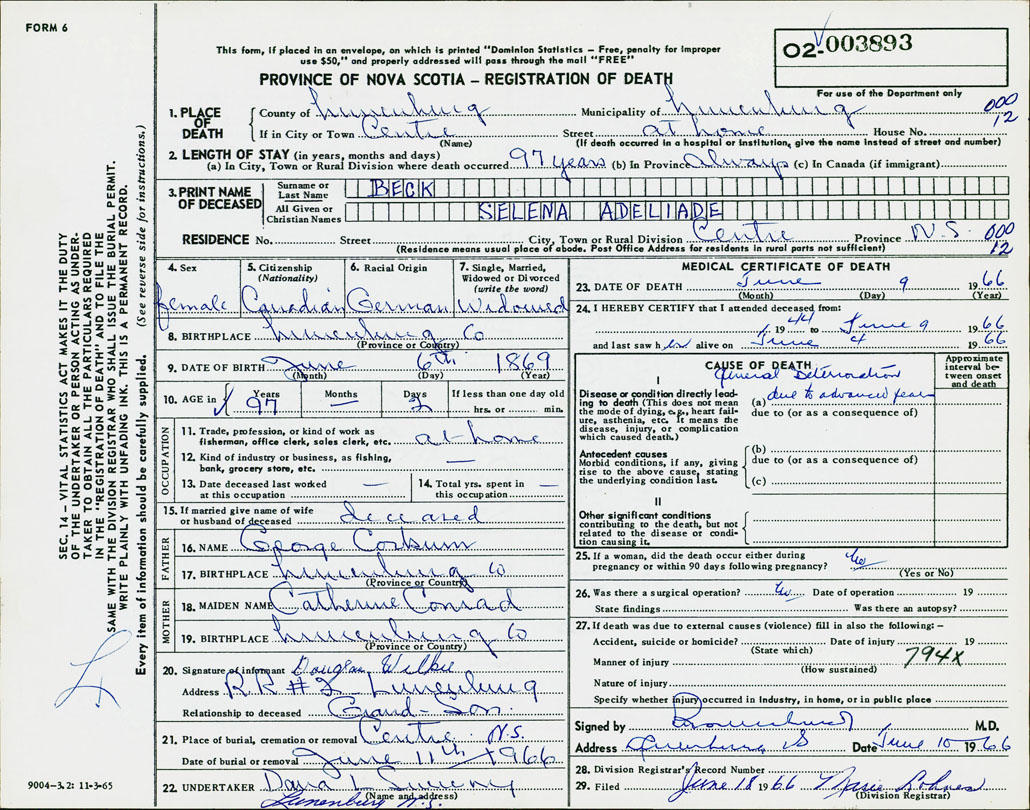 FORM 6
This form, if placed in an envelope, on which is printed "Dominion Statistics – Free, penalty for improper
use $50," and properly addressed will pass through the mail "FREE"
PROVINCE OF NOVA SCOTIA – REGISTRATION OF DEATH
02-003893
For use of the Department only
1. PLACE OF DEATH
County of Lunenburg Municipality of Lunenburg 000 12
If in City or Town Centre Street at home House No.
(Name) (If death occurred in a hospital or institution, give the name instead of street and number)
2. LENGTH OF STAY (in years, months and days)
(a) In City, Town or Rural Division where death occurred 97 years (b) In Province Always (c) In Canada (if immigrant)
3. PRINT NAME OF DECEASED
Surname or Last Name BECK
All Given or Christian Names SELENA ADELIADE
RESIDENCE No. Street City, Town or Rural Division Centre Province N.S. 000 12
(Residence means usual place of abode. Post Office Address for residents in rural parts not sufficient)
4. Sex 5. Citizenship (Nationality) 6. Racial Origin 7. Single, Married, Widowed or Divorced (write the word)
female Canadian German Widowed
8. BIRTHPLACE Lunenburg Co
(Province or Country)
9. DATE OF BIRTH June 6th 1869
(Month) (Day) (Year)
10. AGE in Years Months Days If less than one day old
97 — 3 hrs. or min.
OCCUPATION
11. Trade, profession, or kind of work as
fisherman, office clerk, sales clerk, etc. at home
12. Kind of industry or business, as fishing,
bank, grocery store, etc. —
13. Date deceased last worked at this occupation —
14. Total yrs. spent in this occupation —
15. If married give name of wife
or husband of deceased deceased
FATHER
16. NAME George Corkum
17. BIRTHPLACE Lunenburg Co
(Province or Country)
MOTHER
18. MAIDEN NAME Catherine Conrad
19. BIRTHPLACE Lunenburg Co
(Province or Country)
20. Signature of informant Douglas Wilkie
Address R.R #2 Lunenburg
Relationship to deceased Grand-Son.
21. Place of burial, cremation or removal Centre N.S.
Date of burial or removal June 11th 1966
22. UNDERTAKER
(Name and address)
Lunenburg N.S.
MEDICAL CERTIFICATE OF DEATH
23. DATE OF DEATH June 9 1966
(Month) (Day) (Year)
24. I HEREBY CERTIFY that I attended deceased from:
1944 to June 9 1966
and last saw her alive on June 4 1966
CAUSE OF DEATH
Approximate interval between onset and death
I
General Deterioration
Disease or condition directly leading to death (This does not mean the mode of dying, e.g., heart failure, asthenia, etc. It means the disease, injury, or complication which caused death.)
(a) due to advanced years
due to (or as a consequence of)
Antecedent causes
Morbid conditions, if any, giving rise to the above cause, stating the underlying condition last.
(b)
due to (or as a consequence of)
(c)
II
Other significant conditions
contributing to the death, but not related to the disease or condition causing it.
25. If a woman, did the death occur either during
pregnancy or within 90 days following pregnancy? No
(Yes or No)
26. Was there a surgical operation? No Date of operation 19
State findings Was there an autopsy?
27. If death was due to external causes (violence) fill in also the following: –
Accident, suicide or homicide? Date of injury 19
(State which) 794X
Manner of injury
(How sustained)
Nature of injury
Specify whether injury occurred in industry, in home, or in public place
Signed by M.D.
Address Lunenburg NS Date June 10 1966
28. Division Registrar's Record Number
29. Filed June 18 1966 Marie Lohnes
(Division Registrar)
9004-3.2: 11-3-65
SEC. 14 – VITAL STATISTICS ACT MAKES IT THE DUTY
OF THE UNDERTAKER OR PERSON ACTING AS UNDER-
TAKER TO OBTAIN ALL THE PARTICULARS REQUIRED
IN THE "REGISTRATION OF DEATH" AND TO FILE THE
SAME WITH THE DIVISION REGISTRAR WHO SHALL ISSUE THE BURIAL PERMIT.
WRITE PLAINLY WITH UNFADING INK. THIS IS A PERMANENT RECORD.
Every item of information should be carefully supplied. (See reverse side for instructions.)